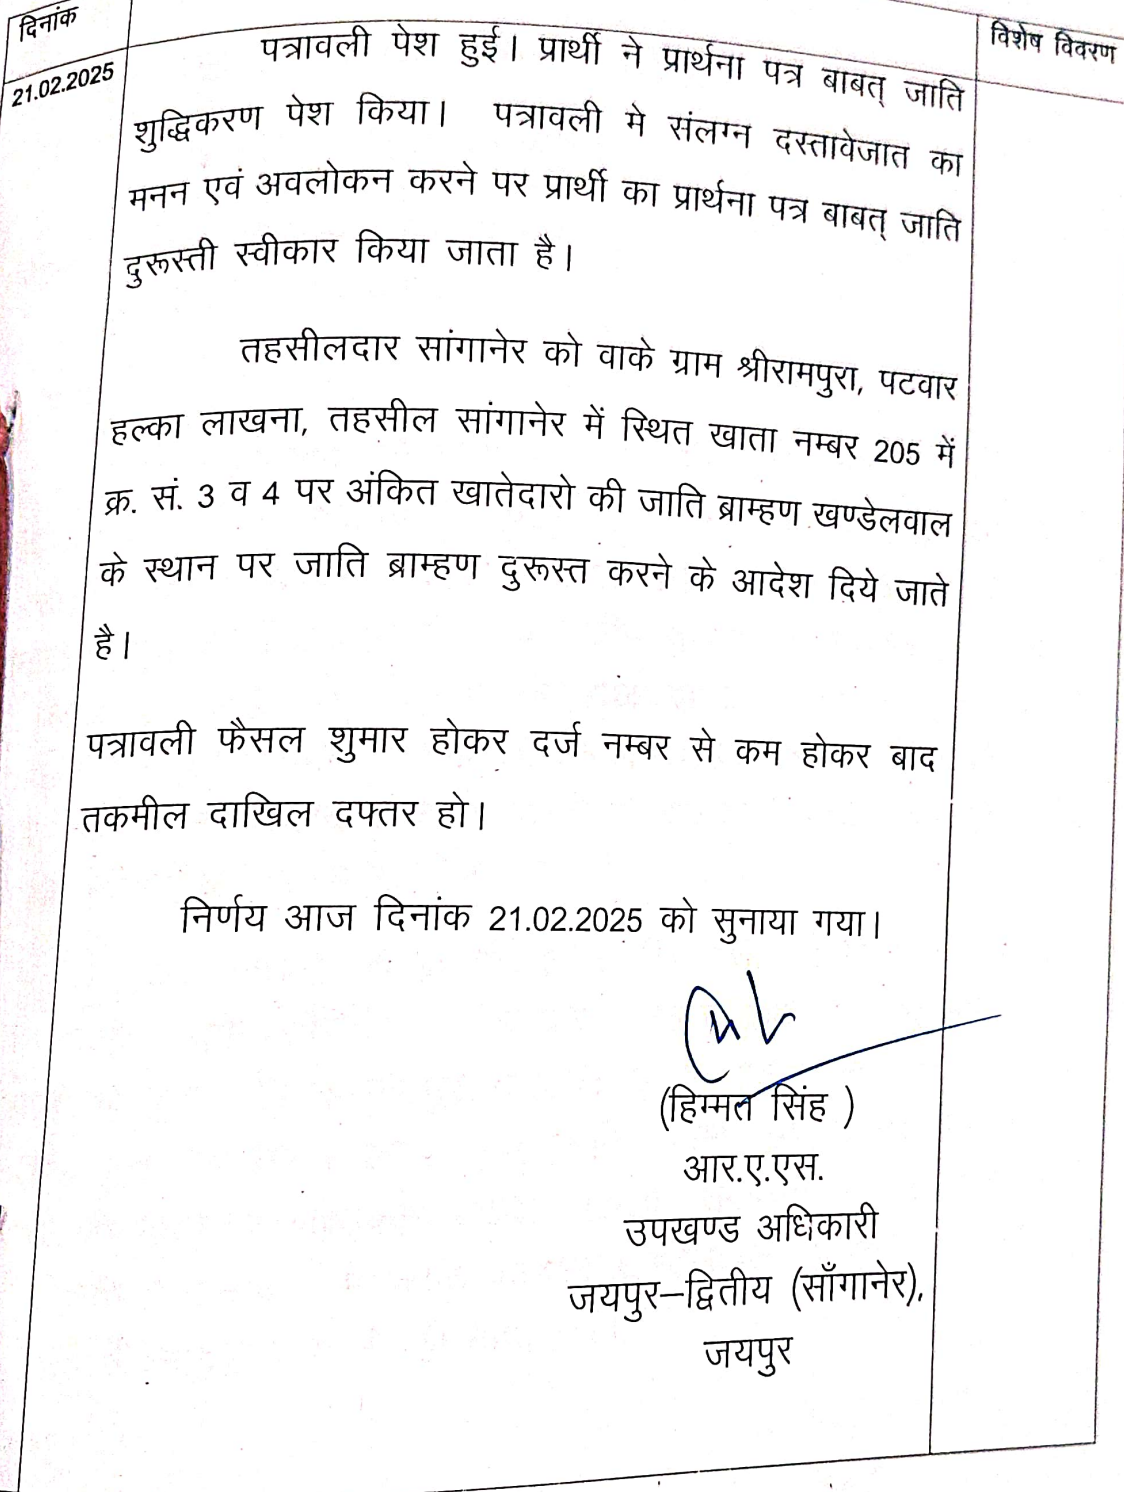 दिनांक
विशेष विवरण
21.02.2025
पत्रावली पेश हुई। प्रार्थी ने प्रार्थना पत्र बाबत् जाति
शुद्धिकरण पेश किया। पत्रावली मे संलग्न दस्तावेजात का
मनन एवं अवलोकन करने पर प्रार्थी का प्रार्थना पत्र बाबत् जाति
दुरूस्ती स्वीकार किया जाता है।
तहसीलदार सांगानेर को वाके ग्राम श्रीरामपुरा, पटवार
हल्का लाखना, तहसील सांगानेर में स्थित खाता नम्बर 205 में
क्र. सं. 3 व 4 पर अंकित खातेदारो की जाति ब्राम्हण खण्डेलवाल
के स्थान पर जाति ब्राम्हण दुरूस्त करने के आदेश दिये जाते
है।
पत्रावली फैसल शुमार होकर दर्ज नम्बर से कम होकर बाद
तकमील दाखिल दफ्तर हो।
निर्णय आज दिनांक 21.02.2025 को सुनाया गया।
(हिम्मत सिंह )
आर.ए.एस.
उपखण्ड अधिकारी
जयपुर–द्वितीय (साँगानेर),
जयपुर